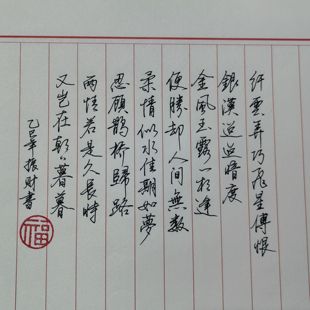 纤雲弄巧飛星傳恨
銀漢迢迢暗度
金風玉露一相逢
便勝却人间無数
柔情似水佳期如夢
忍顧鹊桥歸路
兩情若是久長時
又岂在朝〻暮暮
乙巳年振財書
福